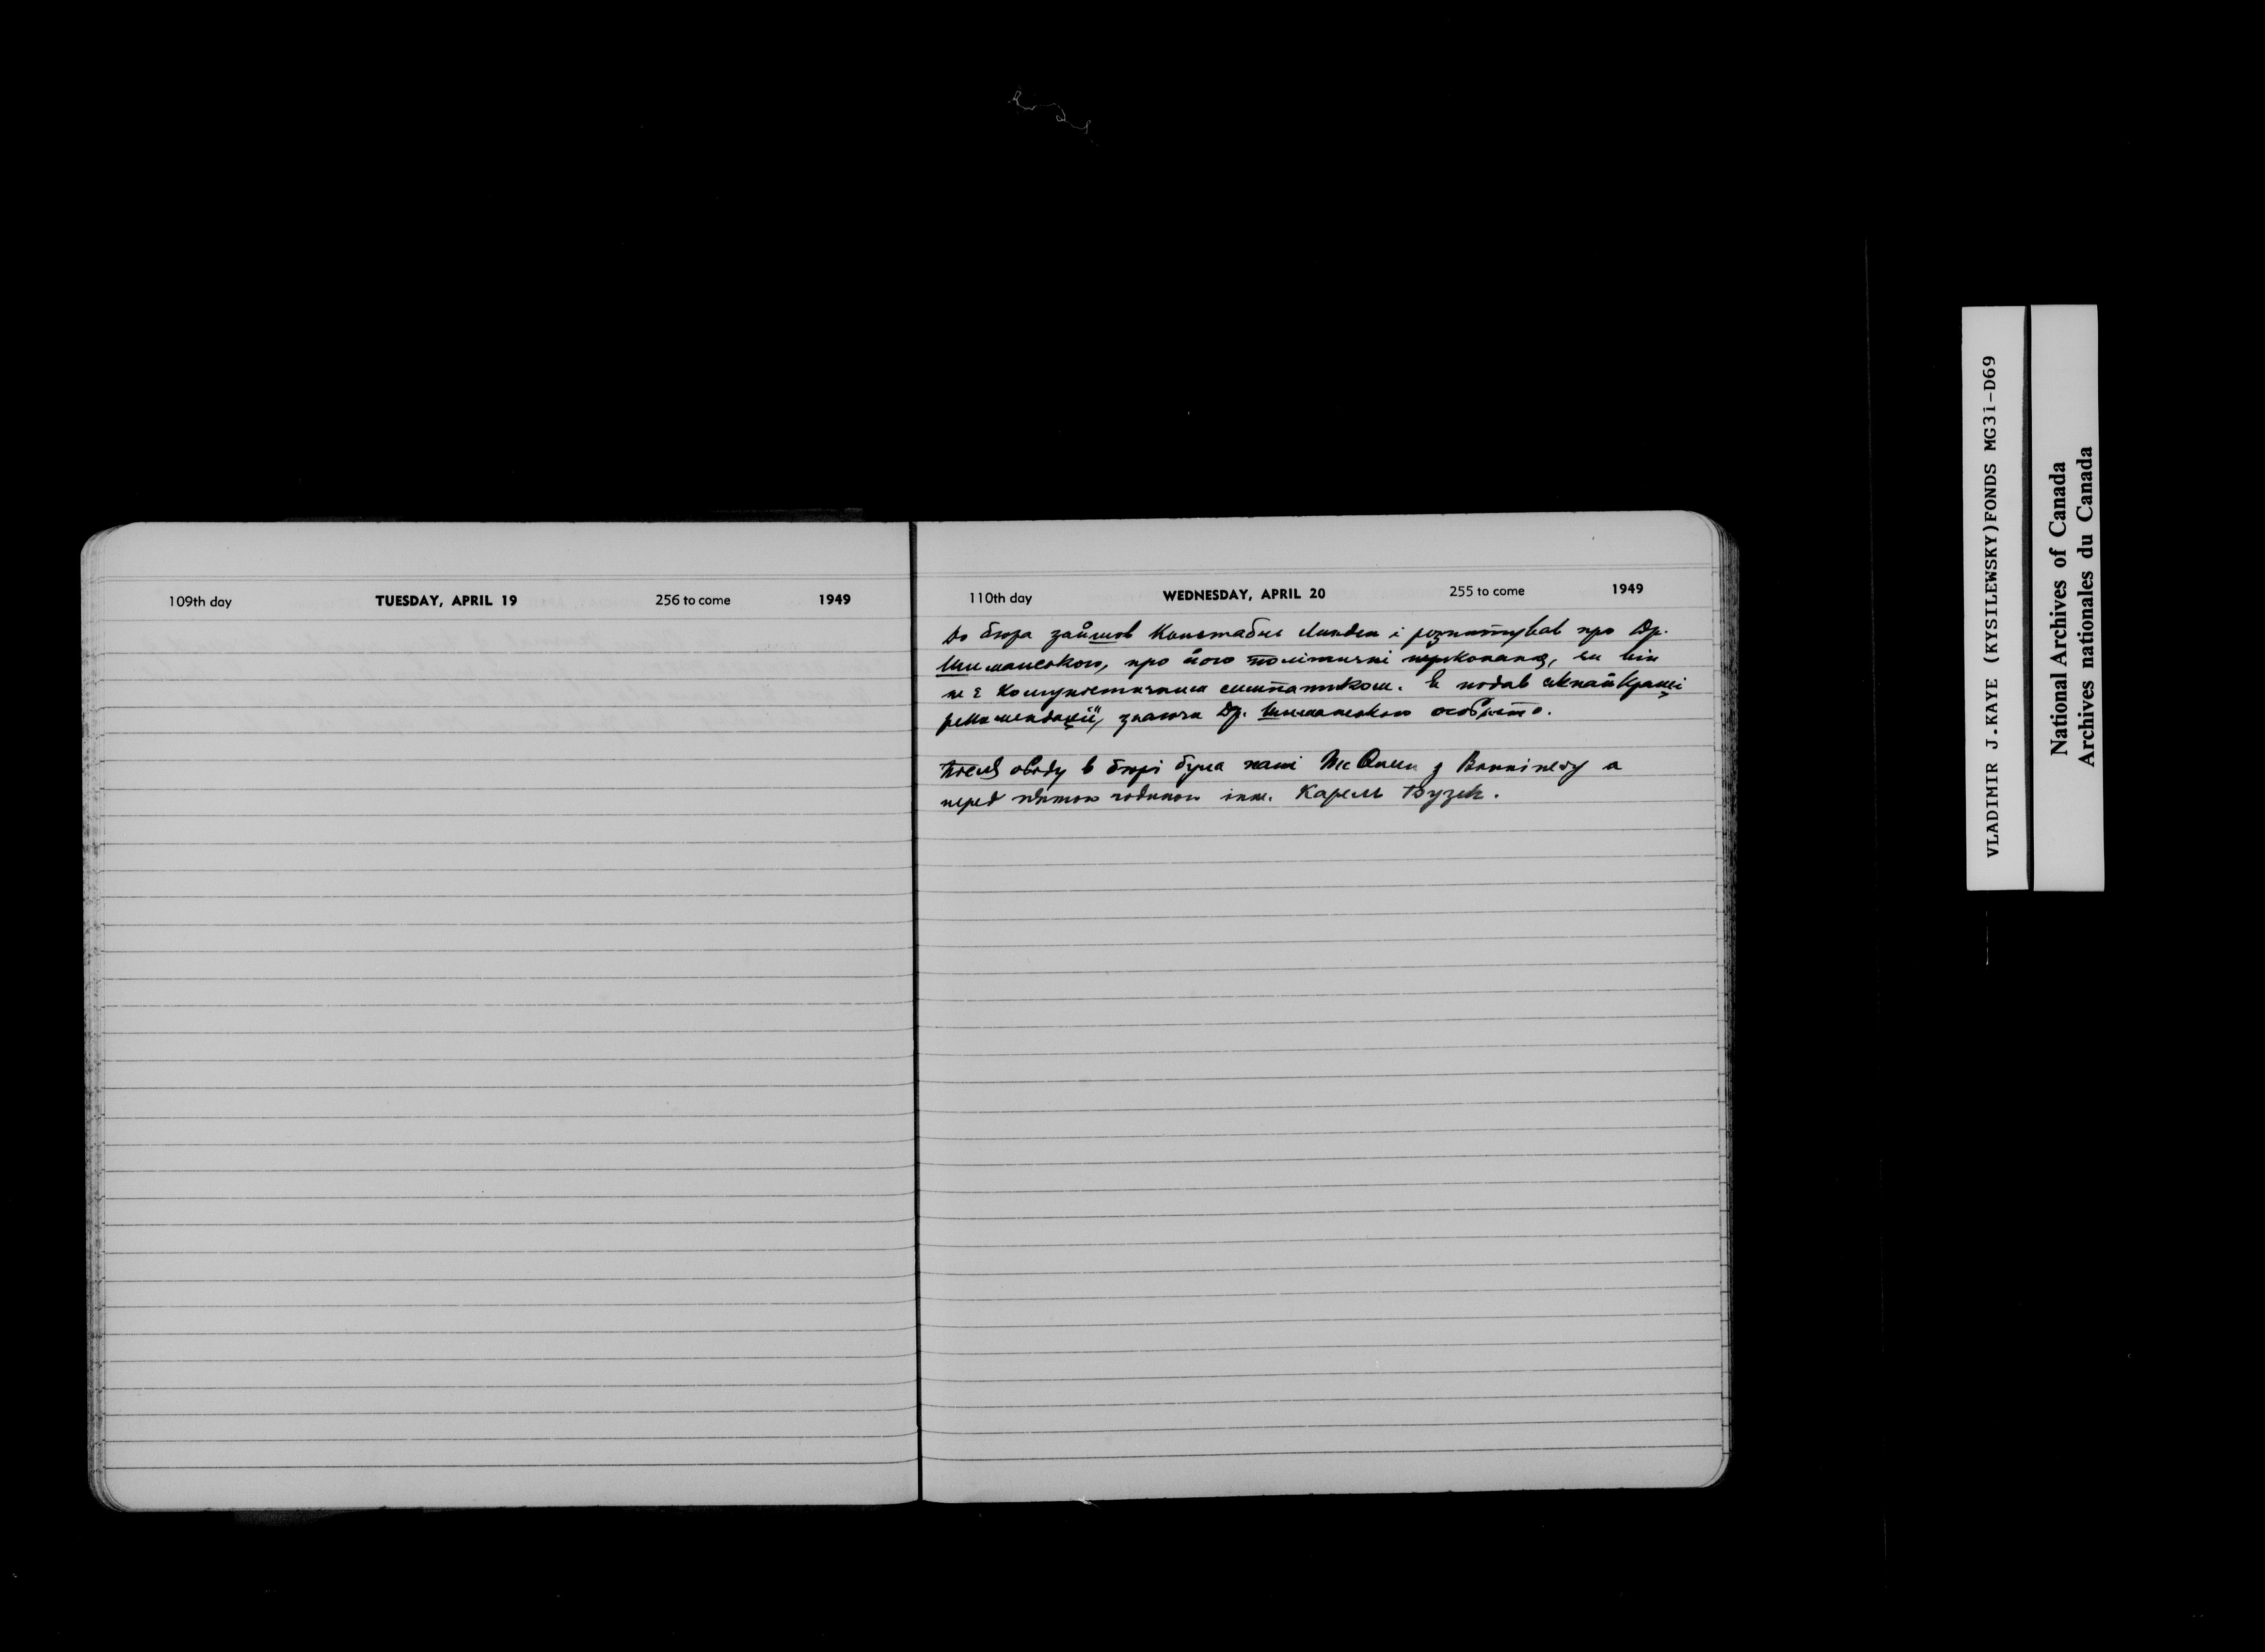 109th day TUESDAY, APRIL 19 256 to come 1949
110th day WEDNESDAY, APRIL 20 255 to come 1949
До бюра зайшов Констабль Линден і розпитував про Др.
Шиманського, про його політичні переконаня, чи він
не є комуністичним симпатиком. Я подав якнайкращі
рекомендації, знаючи Др. Шиманського особисто.
Після обіду в бюрі була пані з Вінніпегу а
перед пятою годиною інж. Карель Бузек.
VLADIMIR J.KAYE (KYSILEWSKY)FONDS MG31-D69
National Archives of Canada
Archives nationales du Canada